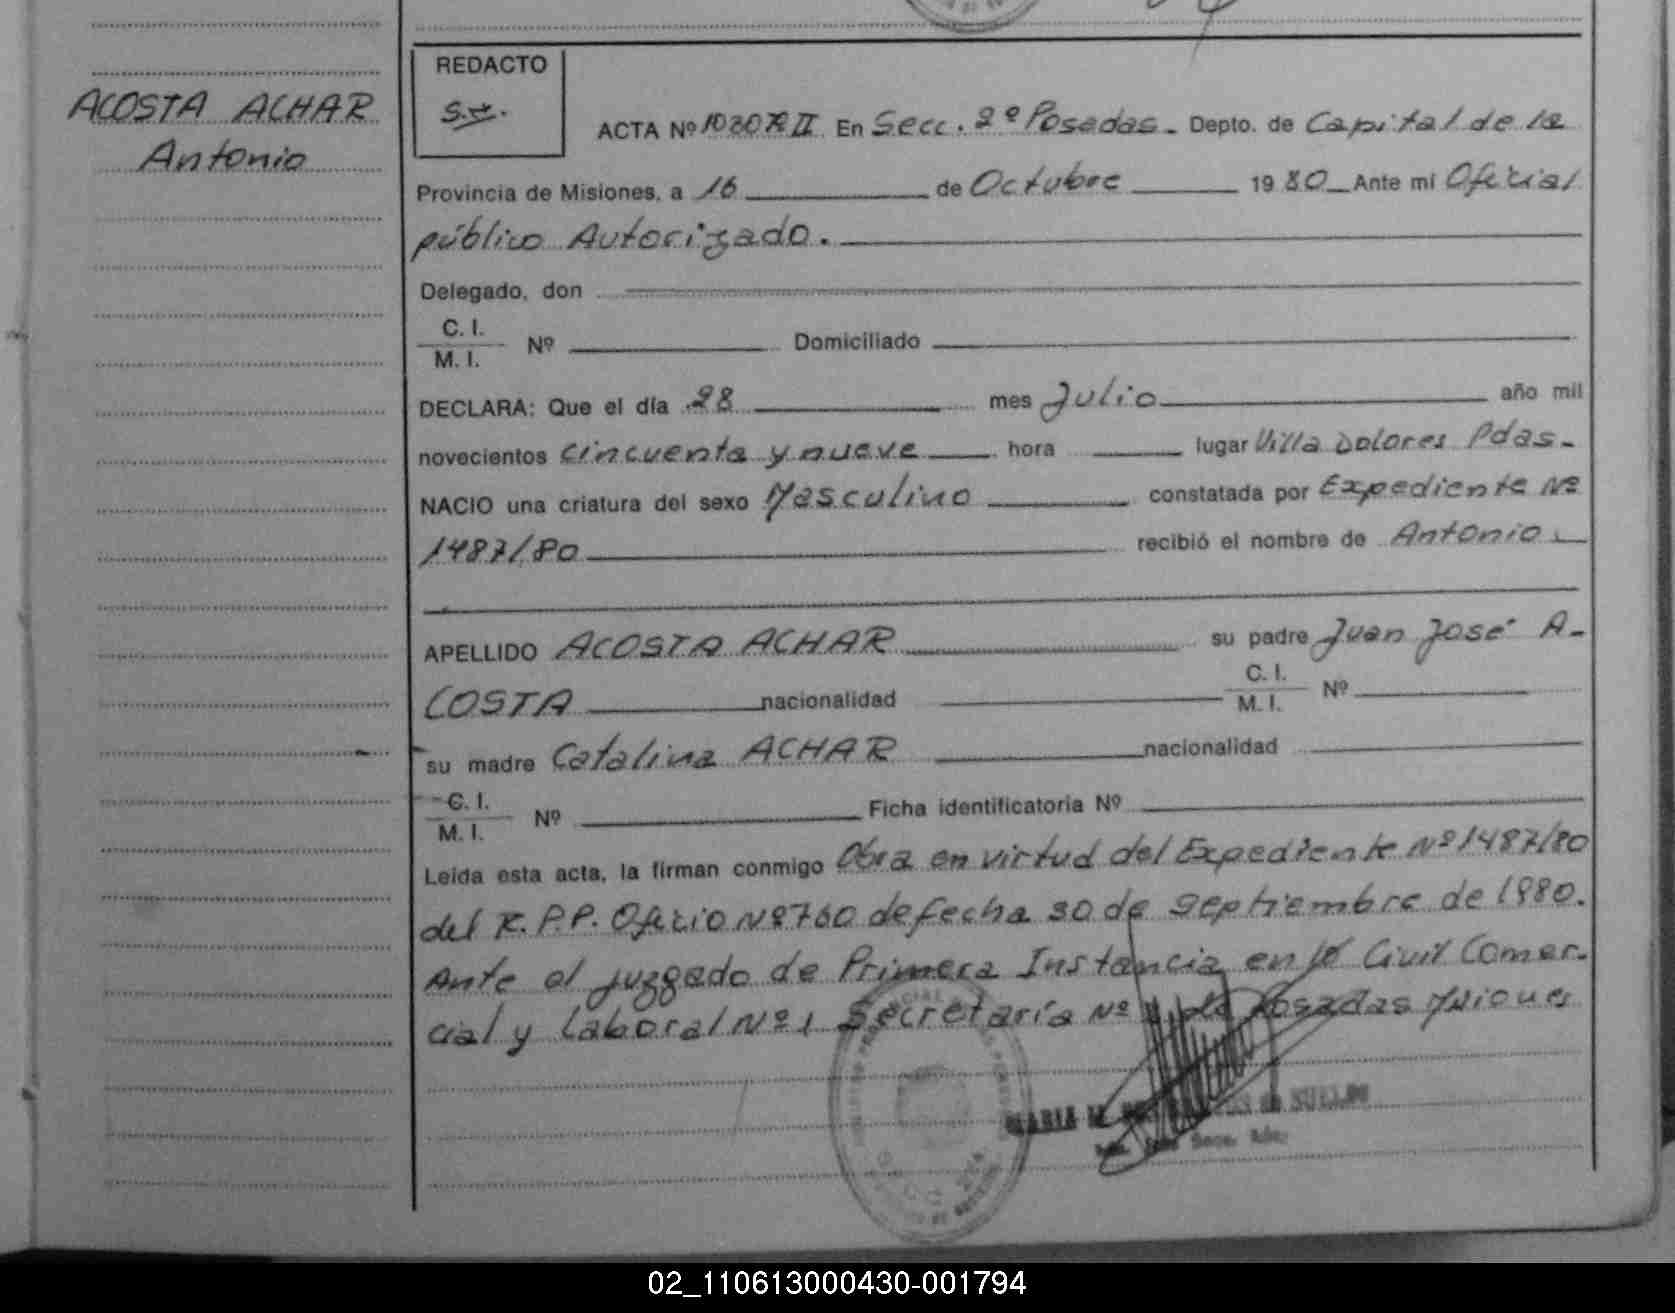 ACOSTA ACHAR
Antonio
REDACTO
ACTA Nº II En Secc. 2º Posadas. Depto. de Capital de la
Provincia de Misiones, a 16 de Octubre 1980 Ante mí Oficial
público Autorizado.
Delegado, don
C. I.
M. I. Nº Domiciliado
DECLARA: Que el día 28 mes Julio año mil
novecientos cincuenta y nueve hora lugar Villa Dolores Pdas.
NACIO una criatura del sexo Masculino constatada por Expediente Nº
1487/80 recibió el nombre de Antonio.
APELLIDO ACOSTA ACHAR su padre Juan José A-
COSTA nacionalidad C. I. M. I. Nº
su madre Catalina ACHAR nacionalidad
C. I.
M. I. Nº Ficha identificatoria Nº
Leída esta acta, la firman conmigo Obra en virtud del Expediente Nº 1487/80
del R.P.P. Oficio Nº 760 de fecha 30 de Septiembre de 1980.
Ante el juzgado de Primera Instancia en lo Civil Comer-
cial y Laboral Nº 1 Secretaría Nº de Posadas Misiones
02_110613000430-001794